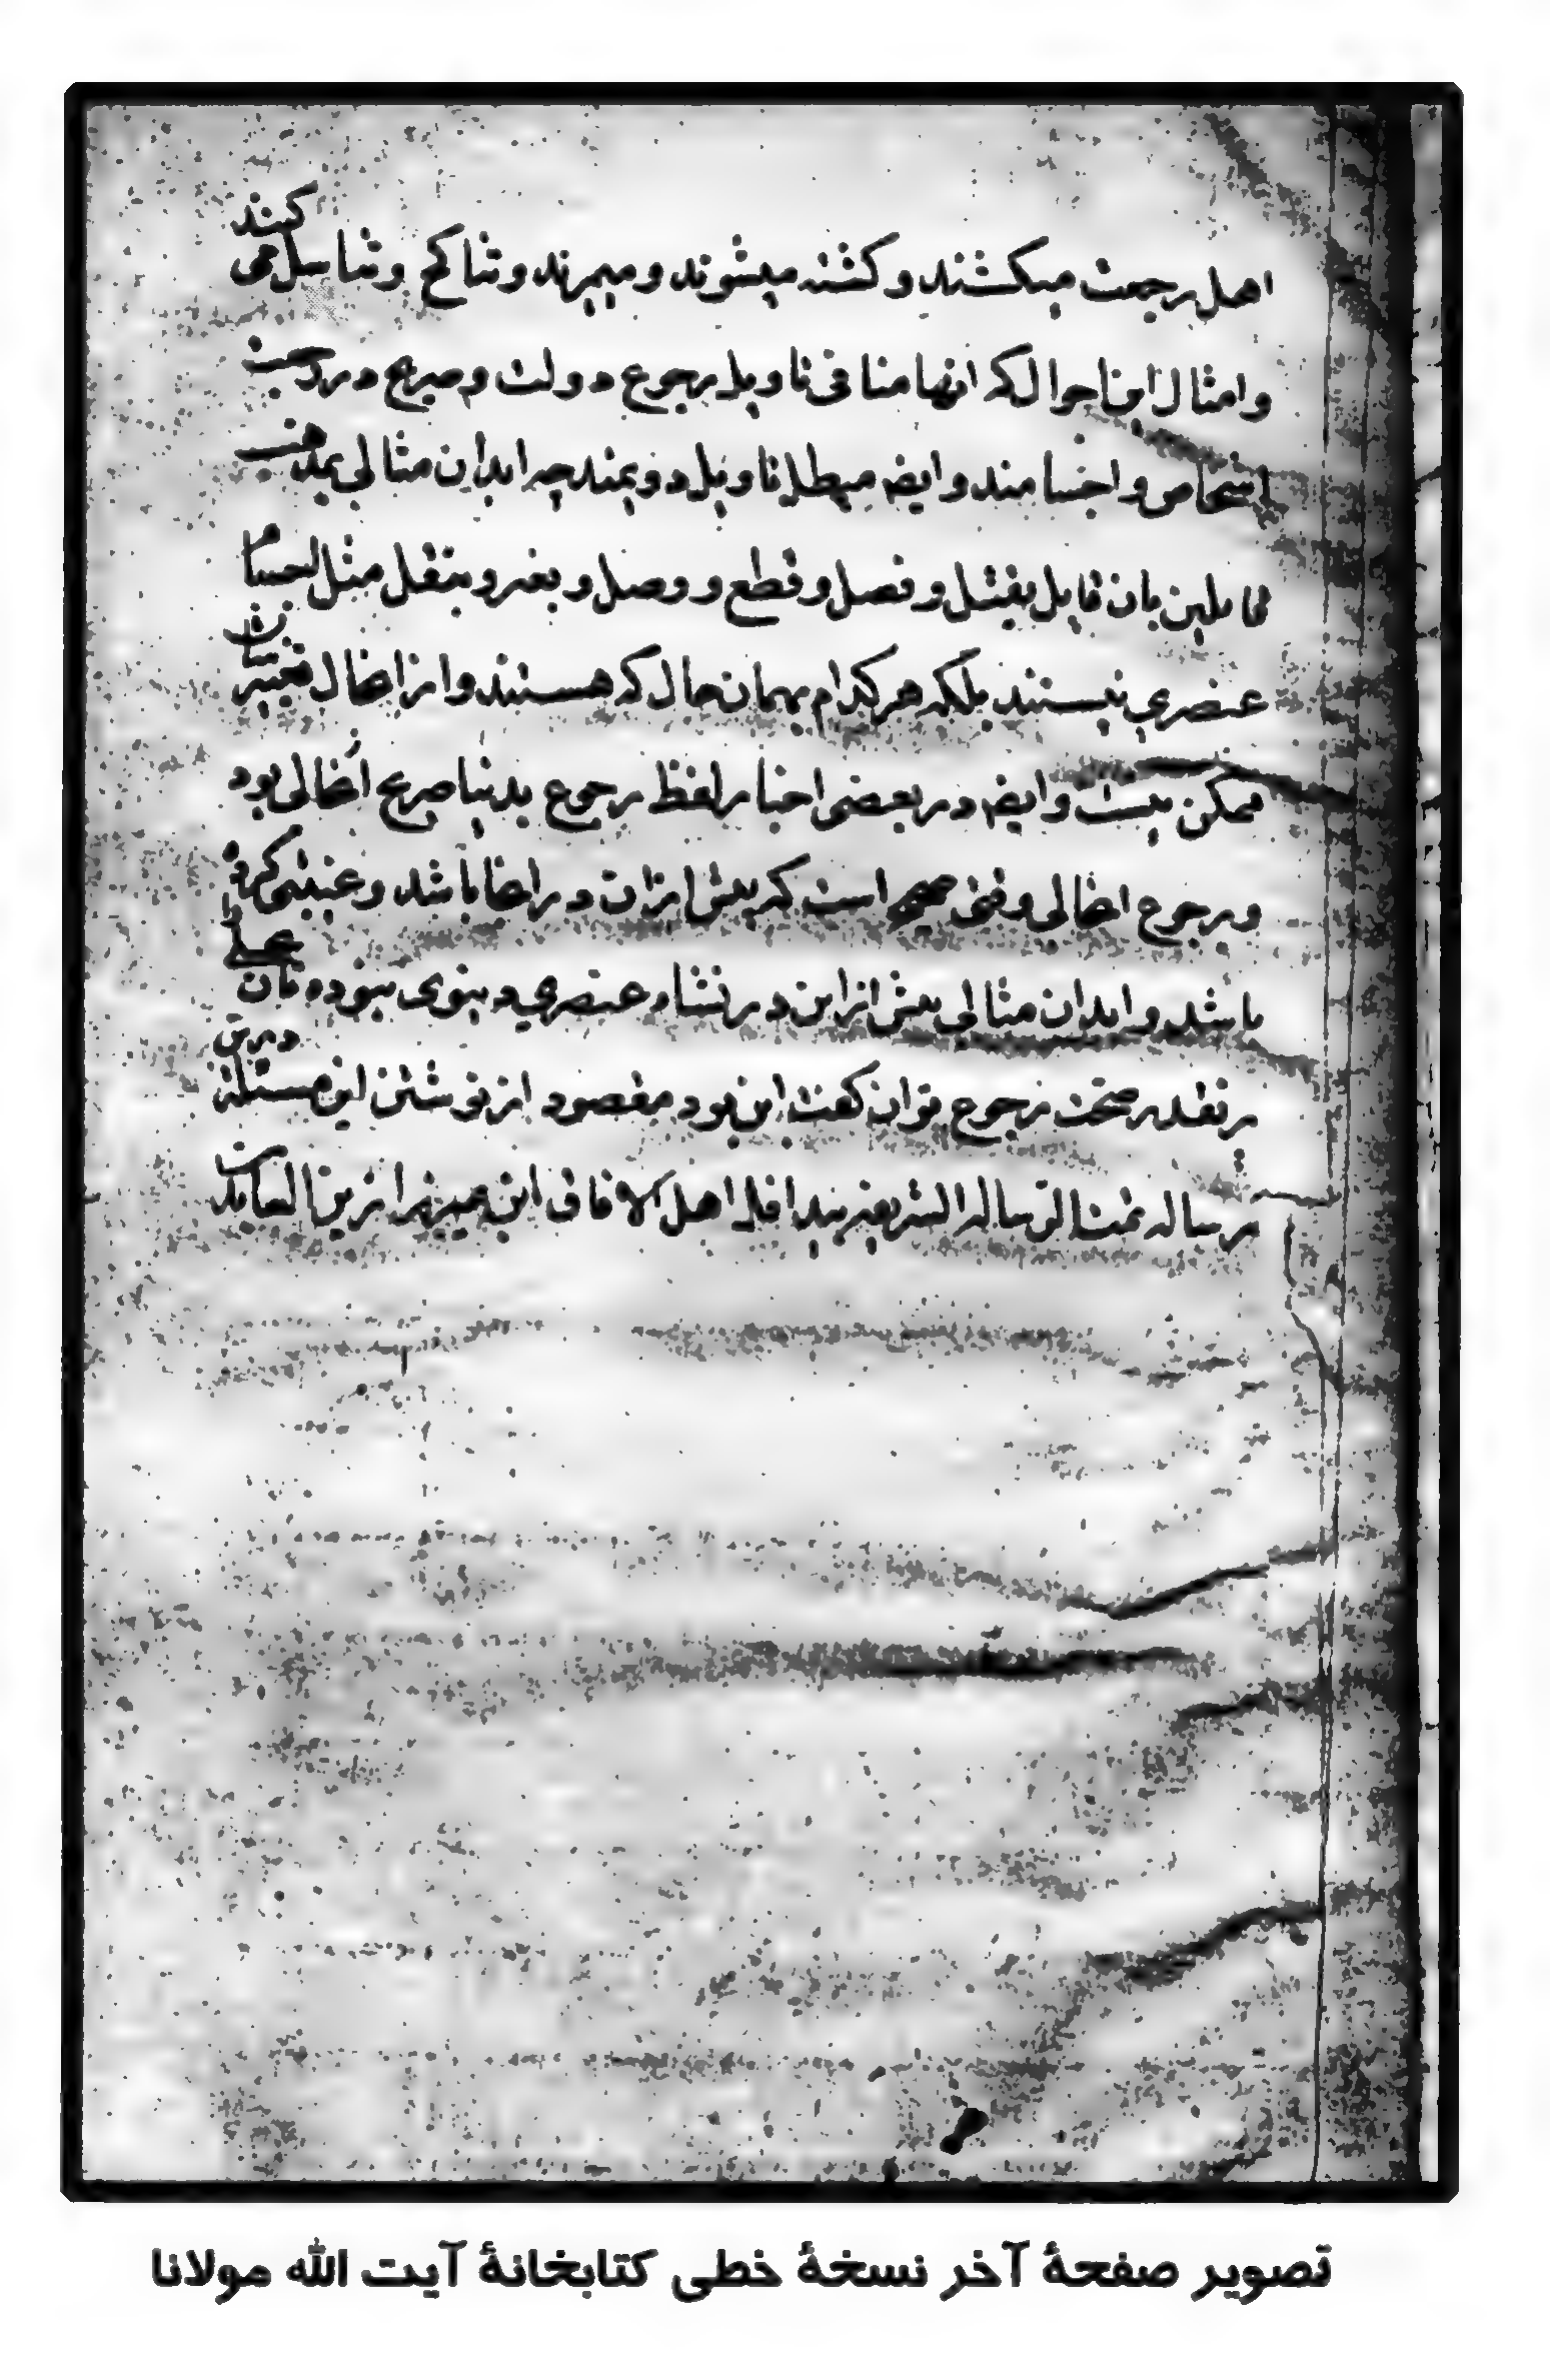 اهل رجعت میکشند و کشته میشوند و میمیرند و تناکح و تناسل می کنند
و امثال این احوال که اینها منافی تاویل رجوع دولت و صریح در رجعت
اشخاص و اجسامند و ایضه مبطل تاویل دویمند چه ابدان مثالی بمذهب
قاملین بان قابل بقتل و فصل و قطع و وصل و بعنر و بتقل مثل اجسام
عنصری نیستند بلکه هر کدام بهمان حال که هستند و از انحال تغییرشان
ممکن نیست و ایضه در بعضی اخبار لفظ رجوع بدنیا صریح انحالی بود
و رجوع انحالی وقتی صحیح است که پیش ازان در انجا باشد و عیبتی کرده
باشد و ابدان مثالی پیش ازین در نشاه عنصری دنیوی نبوده تا بان
تقدیر صحت رجوع توان گفت این بود مقصود از نوشتن این مسئله درین
رساله تمت الرساله الشریفه بید اقل اهل الافاق ابن میرزا زین العابدین
تصویر صفحهٔ آخر نسخهٔ خطی کتابخانهٔ آیت الله مولانا